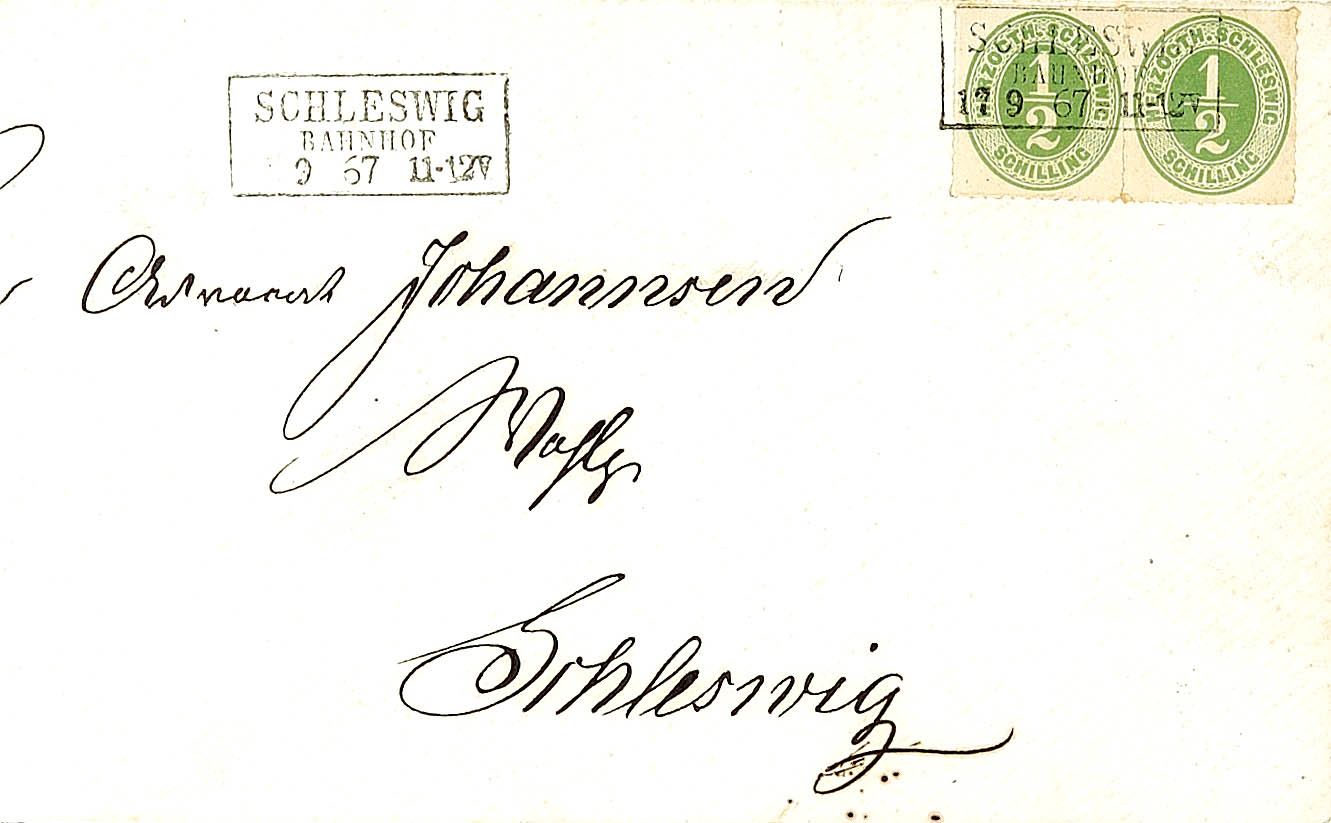 SCHLESWIG
BAHNHOF
9 67 11-12V
SCHLESWIG
BAHNHOF
17 9 67 11-12V
HERZOGTH. SCHLESWIG
1/2
SCHILLING
HERZOGTH. SCHLESWIG
1/2
SCHILLING
Advocat Johannsen
Schleswig